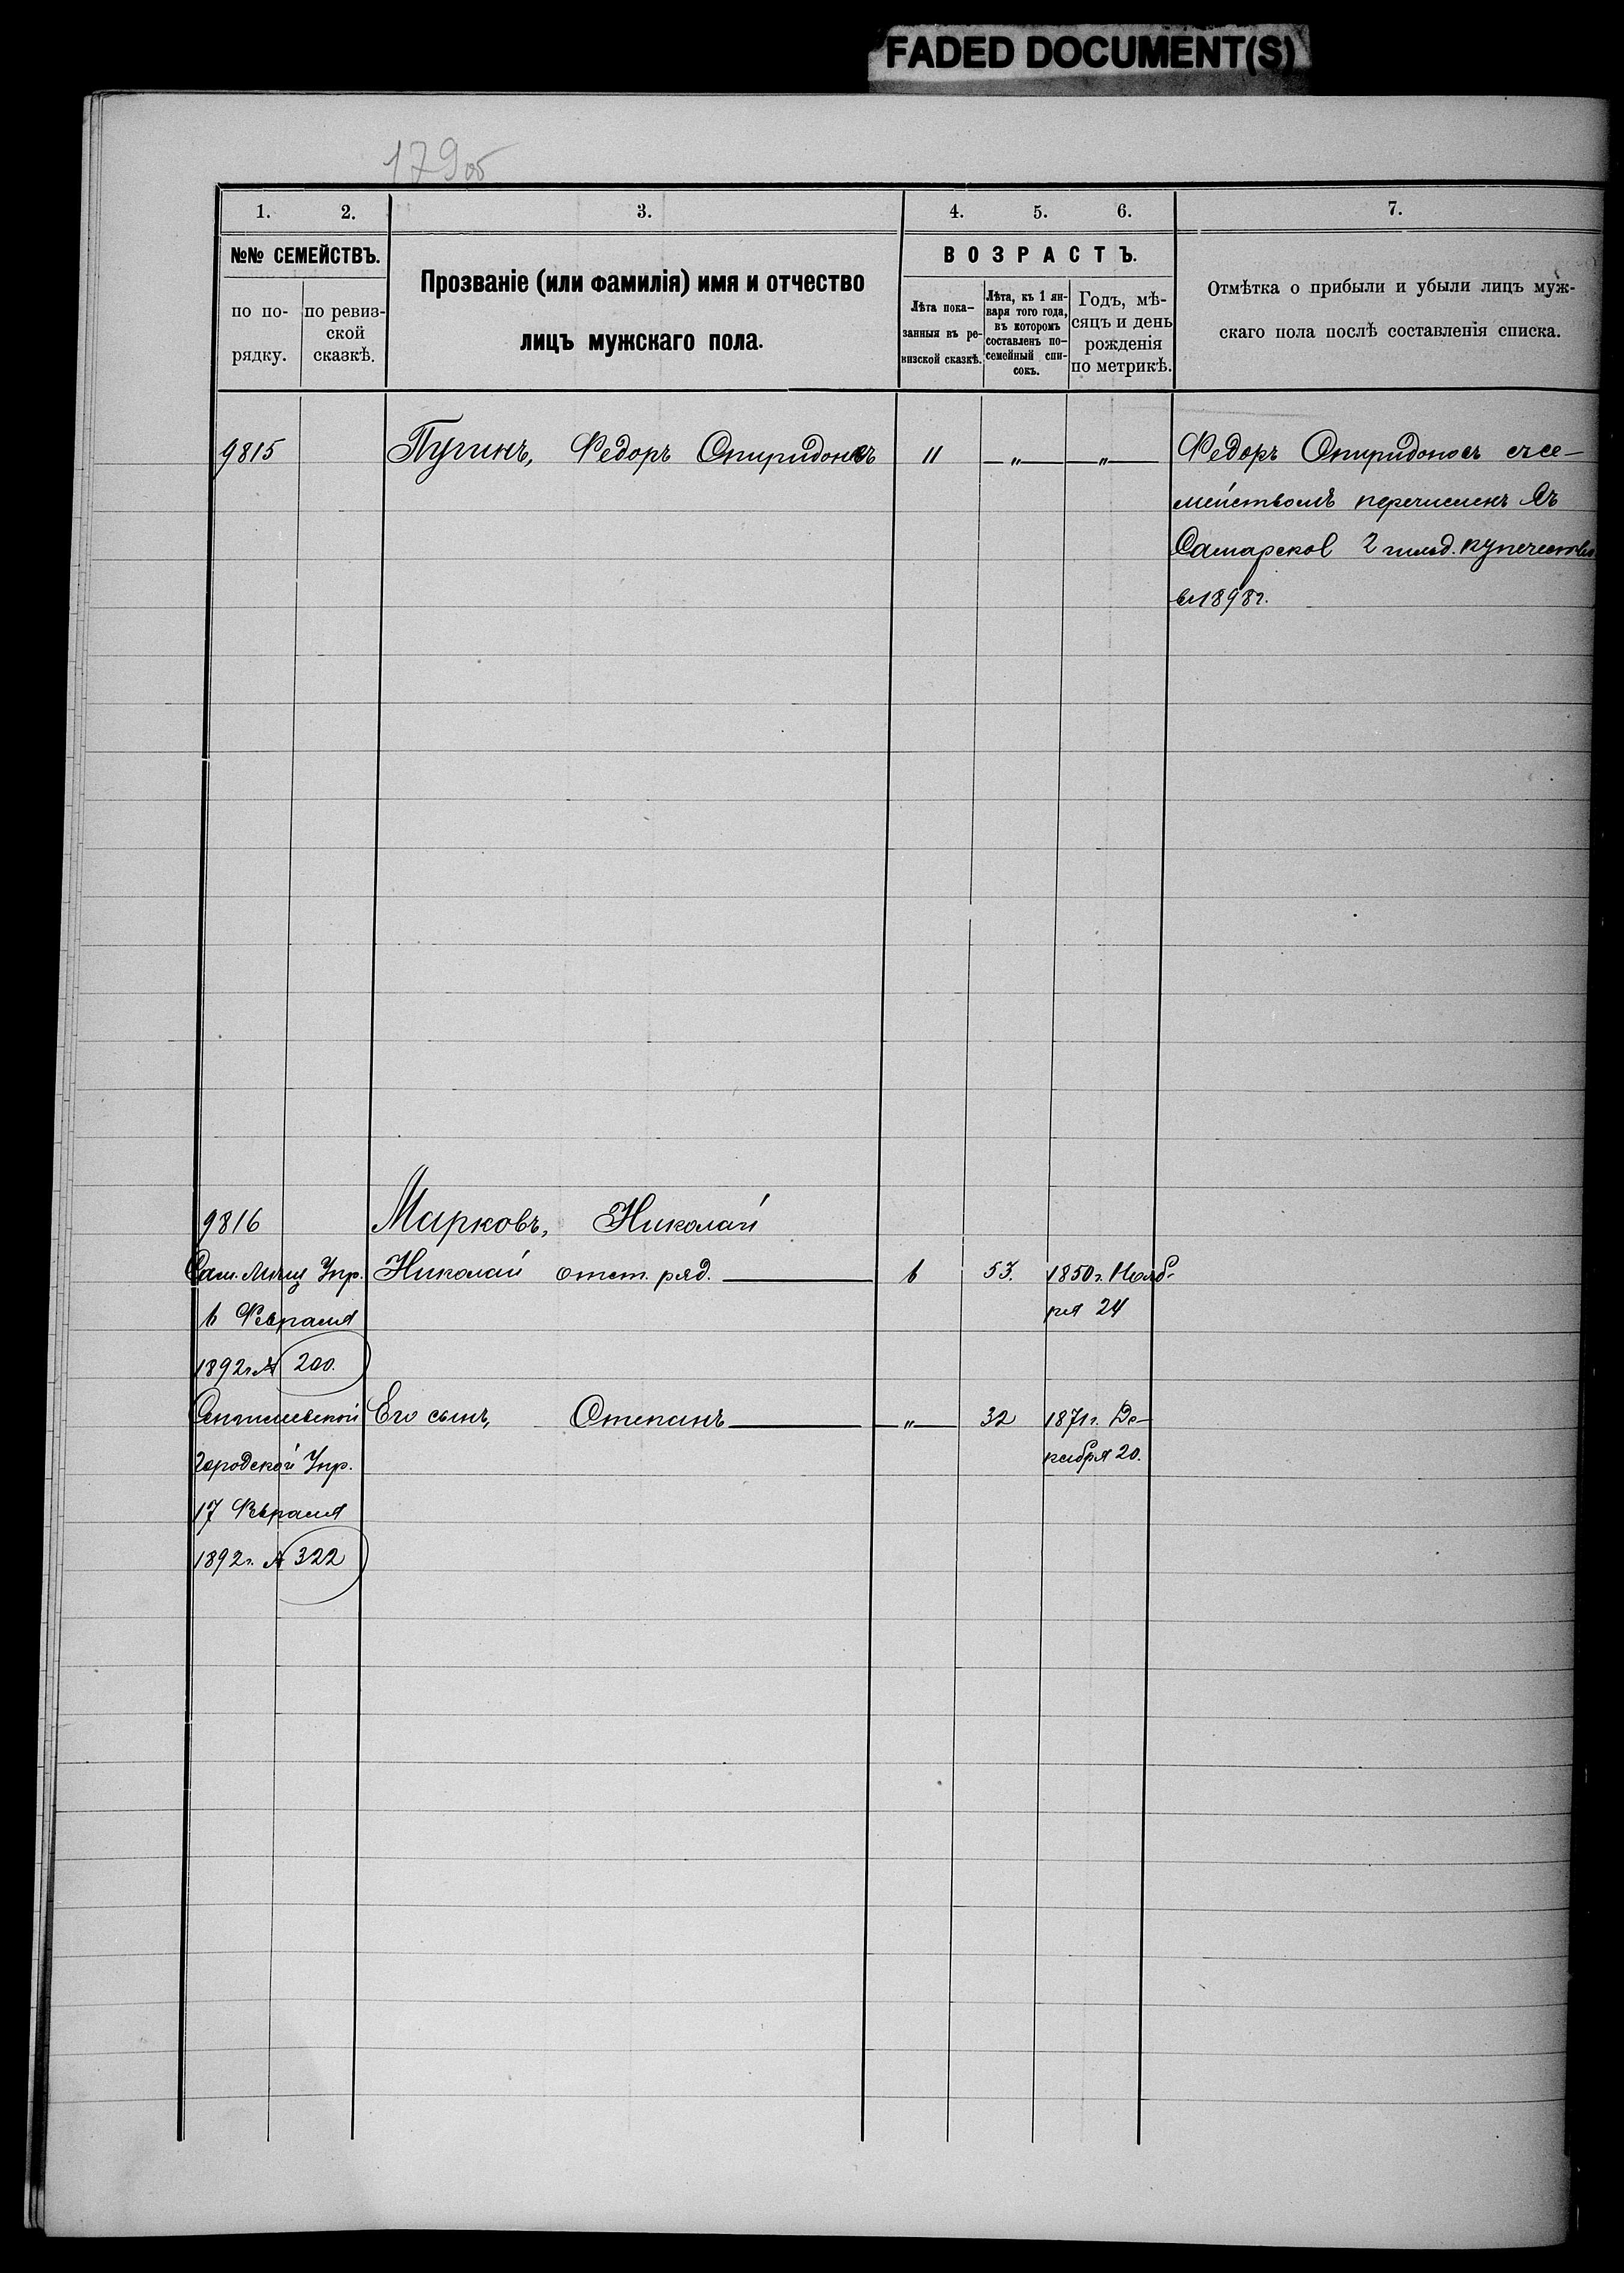 FADED DOCUMENT(S)
179об
1. 2. 3. 4. 5. 6. 7.
№№ СЕМЕЙСТВЪ.
по по-
рядку.
по ревиз-
ской
сказкѣ.
Прозваніе (или фамилія) имя и отчество
лицъ мужскаго пола.
ВОЗРАСТЪ.
Лѣта пока-
занныя въ ре-
визской сказкѣ.
Лѣта, къ 1 ян-
варя того года,
въ которомъ
составленъ по-
семейный спи-
сокъ.
Годъ, мѣ-
сяцъ и день
рожденія
по метрикѣ.
Отмѣтка о прибыли и убыли лицъ муж-
скаго пола послѣ составленія списка.
9815 Пугинъ, Федоръ Спиридоновъ 11 — „ — — „ — Федоръ Спиридоновъ съ се-
мействомъ перечисленъ въ
Самарское 2 гильд. купечество
въ 1898 г.
9816 Марковъ, Николай
Сам. Мѣщ. Упр. Николай отст. ряд. — 6 53. 1850 г. Нояб-
ря 24
6 Февраля
1892 г. № 200.
городской Упр.
17 Февраля
1892 г. № 322
Его сынъ, Степанъ — „ — 32 1871 г. Де-
кабря 20.